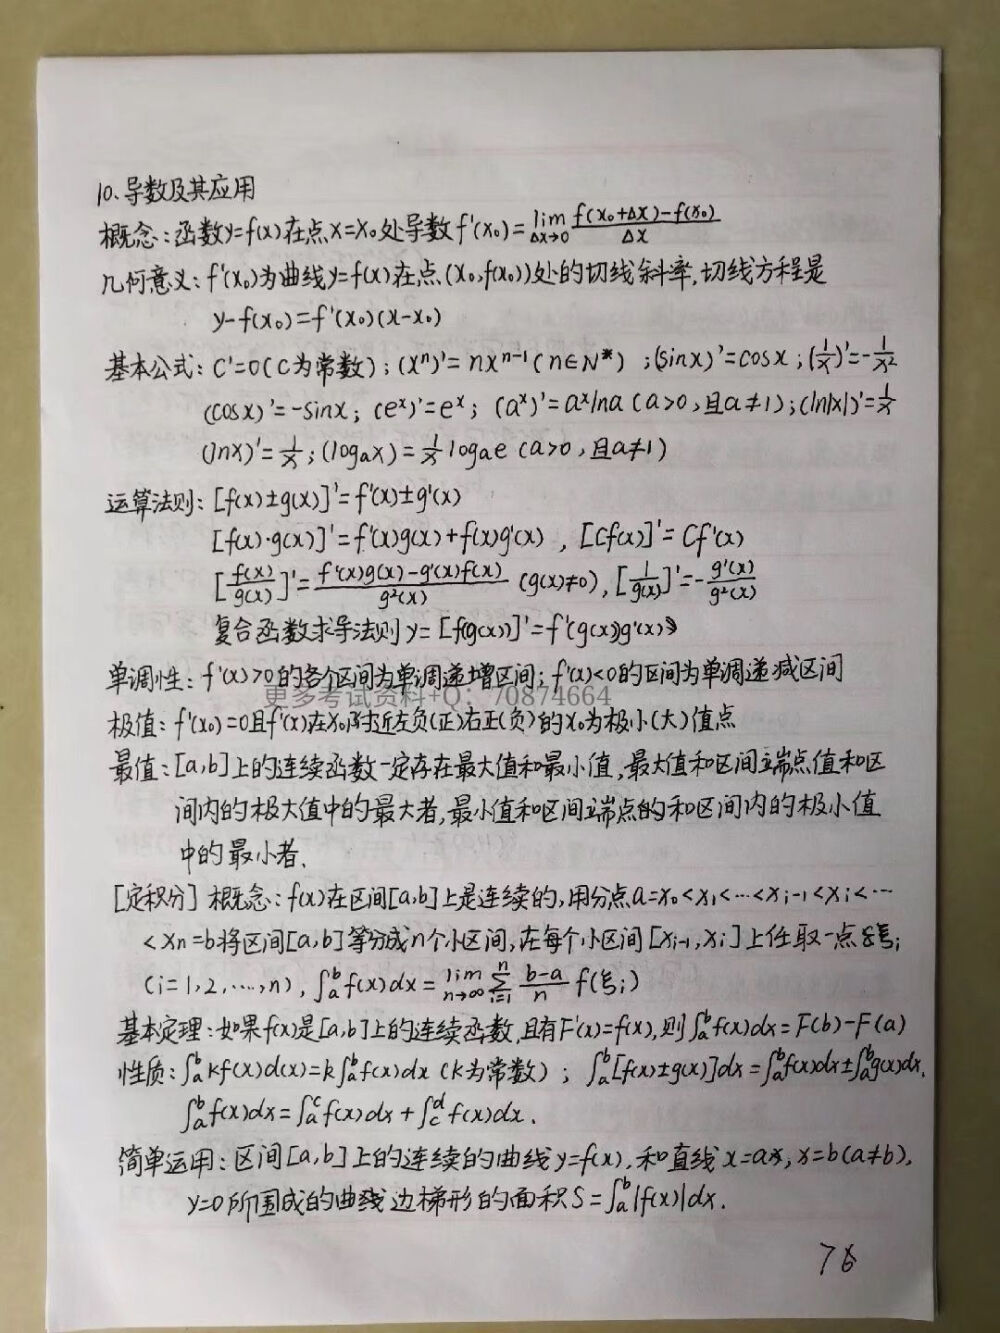 10、导数及其应用
概念:函数y=f(x)在点x=x₀处导数f'(x₀)=lim Δx→0 f(x₀+Δx)-f(x₀)/Δx
几何意义:f'(x₀)为曲线y=f(x)在点(x₀,f(x₀))处的切线斜率,切线方程是
y-f(x₀)=f'(x₀)(x-x₀)
基本公式:C'=0(C为常数);(xⁿ)'=nxⁿ⁻¹(n∈N*);(sinx)'=cosx;(1/x)'=-1/x²
(cosx)'=-sinx;(eˣ)'=eˣ;(aˣ)'=aˣlna(a>0,且a≠1);(ln|x|)'=1/x
(lnx)'=1/x;(logₐx)=1/x logₐe(a>0,且a≠1)
运算法则:[f(x)±g(x)]'=f'(x)±g'(x)
[f(x)·g(x)]'=f'(x)g(x)+f(x)g'(x),[Cf(x)]'=Cf'(x)
[f(x)/g(x)]'=f'(x)g(x)-g'(x)f(x)/g²(x)(g(x)≠0),[1/g(x)]'=-g'(x)/g²(x)
复合函数求导法则y=[f(g(x))]'=f'(g(x))g'(x)
单调性:f'(x)>0的各个区间为单调递增区间;f'(x)<0的区间为单调递减区间
更多考试资料+Q:70874664
极值:f'(x₀)=0且f'(x)在x₀附近左负(正)右正(负)的x₀为极小(大)值点
最值:[a,b]上的连续函数一定存在最大值和最小值,最大值和区间端点值和区
间内的极大值中的最大者,最小值和区间端点的和区间内的极小值
中的最小者.
[定积分]概念:f(x)在区间[a,b]上是连续的,用分点a=x₀<x₁<…<xᵢ₋₁<xᵢ<…
<xₙ=b将区间[a,b]等分成n个小区间,在每个小区间[xᵢ₋₁,xᵢ]上任取一点ξᵢ
(i=1,2,…,n),∫ₐᵇf(x)dx=lim n→∞ Σ i=1 n b-a/n f(ξᵢ)
基本定理:如果f(x)是[a,b]上的连续函数,且有F'(x)=f(x),则∫ₐᵇf(x)dx=F(b)-F(a)
性质:∫ₐᵇkf(x)d(x)=k∫ₐᵇf(x)dx(k为常数);∫ₐᵇ[f(x)±g(x)]dx=∫ₐᵇf(x)dx±∫ₐᵇg(x)dx.
∫ₐᵇf(x)dx=∫ₐᶜf(x)dx+∫꜀ᵈf(x)dx.
简单运用:区间[a,b]上的连续的曲线y=f(x),和直线x=a,x=b(a≠b),
y=0所围成的曲线边梯形的面积S=∫ₐᵇ|f(x)|dx.